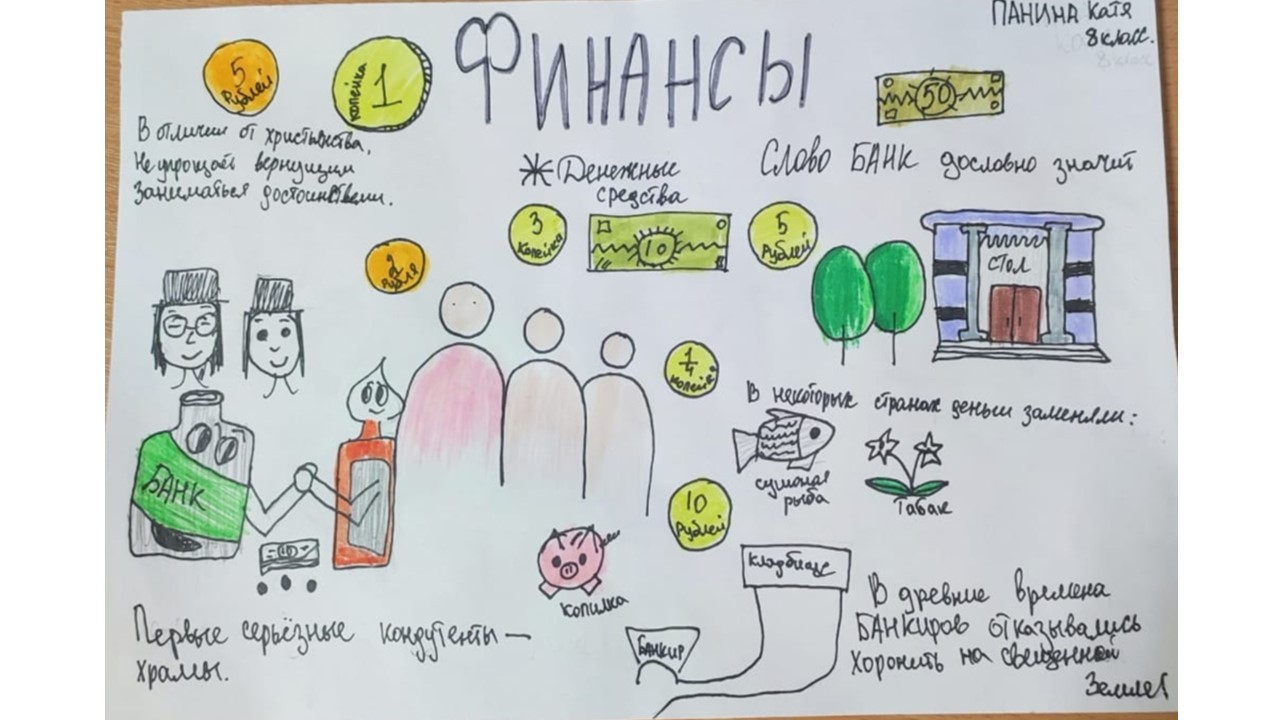 ПАНИНА Катя
8 класс.
ФИНАНСЫ
5
Рублей
1
копейка
50
В отличии от христьянства,
вернущим
Заниматься
Денежные
средства
Слово БАНК дословно значит
3
Копейка
10
5
Рублей
2
Рубля
СТОЛ
1/4
копейка
В некоторых странах деньги заменяли:
сушоная
рыба
Табак
БАНК
10
10
Рублей
копилка
Кладбище
Банкир
Первые серьёзные кондутенты —
храмы.
В древние времена
БАНКиров отказывались
хоронить на священной
Земле!